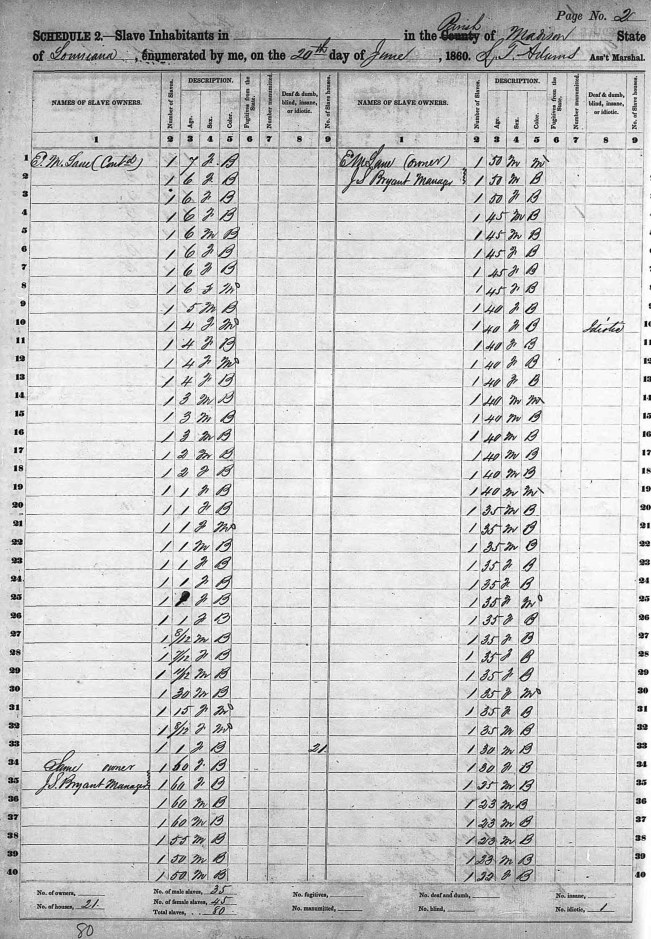 Page No. 2
SCHEDULE 2.—Slave Inhabitants in in the County Parish of Madison State
of Louisiana, enumerated by me, on the 20th day of June, 1860. L. T. Adams Ass't Marshal.
NAMES OF SLAVE OWNERS. Number of Slaves. DESCRIPTION. Age. Sex. Color. Fugitives from the State. Number manumitted. Deaf & dumb, blind, insane, or idiotic. No. of Slave houses. NAMES OF SLAVE OWNERS. Number of Slaves. DESCRIPTION. Age. Sex. Color. Fugitives from the State. Number manumitted. Deaf & dumb, blind, insane, or idiotic. No. of Slave houses.
1 2 3 4 5 6 7 8 9 1 2 3 4 5 6 7 8 9
1 E. M. Lane (Cont'd) 1 7 F B E M Lane (owner) 1 50 M M 1
2 1 6 F B J S Bryant Manager 1 50 M B 2
3 1 6 F B 1 50 F B 3
4 1 6 F B 1 45 M B 4
5 1 6 M B 1 45 M B 5
6 1 6 F B 1 45 F B 6
7 1 6 F B 1 45 F B 7
8 1 6 F M 1 45 F B 8
9 1 5 M B 1 40 F B 9
10 1 4 F M 1 40 F B Idiotic 10
11 1 4 F B 1 40 F B 11
12 1 4 F M 1 40 F B 12
13 1 4 F B 1 40 F B 13
14 1 3 M B 1 40 M M 14
15 1 3 M B 1 40 M B 15
16 1 3 M B 1 40 M B 16
17 1 2 M B 1 40 M B 17
18 1 2 F B 1 40 M B 18
19 1 1 F B 1 40 M M 19
20 1 1 F B 1 35 M B 20
21 1 1 F M 1 35 M B 21
22 1 1 M B 1 35 M B 22
23 1 1 F B 1 35 F B 23
24 1 1 F B 1 35 F B 24
25 1 F B 1 35 F M 25
26 1 1 F B 1 35 F B 26
27 1 /12 M B 1 35 F B 27
28 1 /12 F B 1 35 F B 28
29 1 /12 M B 1 35 F B 29
30 1 30 M B 1 35 F M 30
31 1 15 F M 1 35 F B 31
32 1 /12 F M 1 35 M B 32
33 1 1 F B 21 1 30 M B 33
34 Same owner 1 60 F B 1 30 F B 34
35 J. S. Bryant Manager 1 60 F B 1 25 M B 35
36 1 60 M B 1 23 M B 36
37 1 60 M B 1 23 M B 37
38 1 55 M B 1 23 M B 38
39 1 50 M B 1 23 M B 39
40 1 50 M B 1 22 F B 40
No. of owners, No. of male slaves, 35 No. fugitives, No. deaf and dumb, No. insane,
No. of houses, 21 No. of female slaves, 45 No. manumitted, No. blind, No. idiotic, 1
Total slaves, 80
80